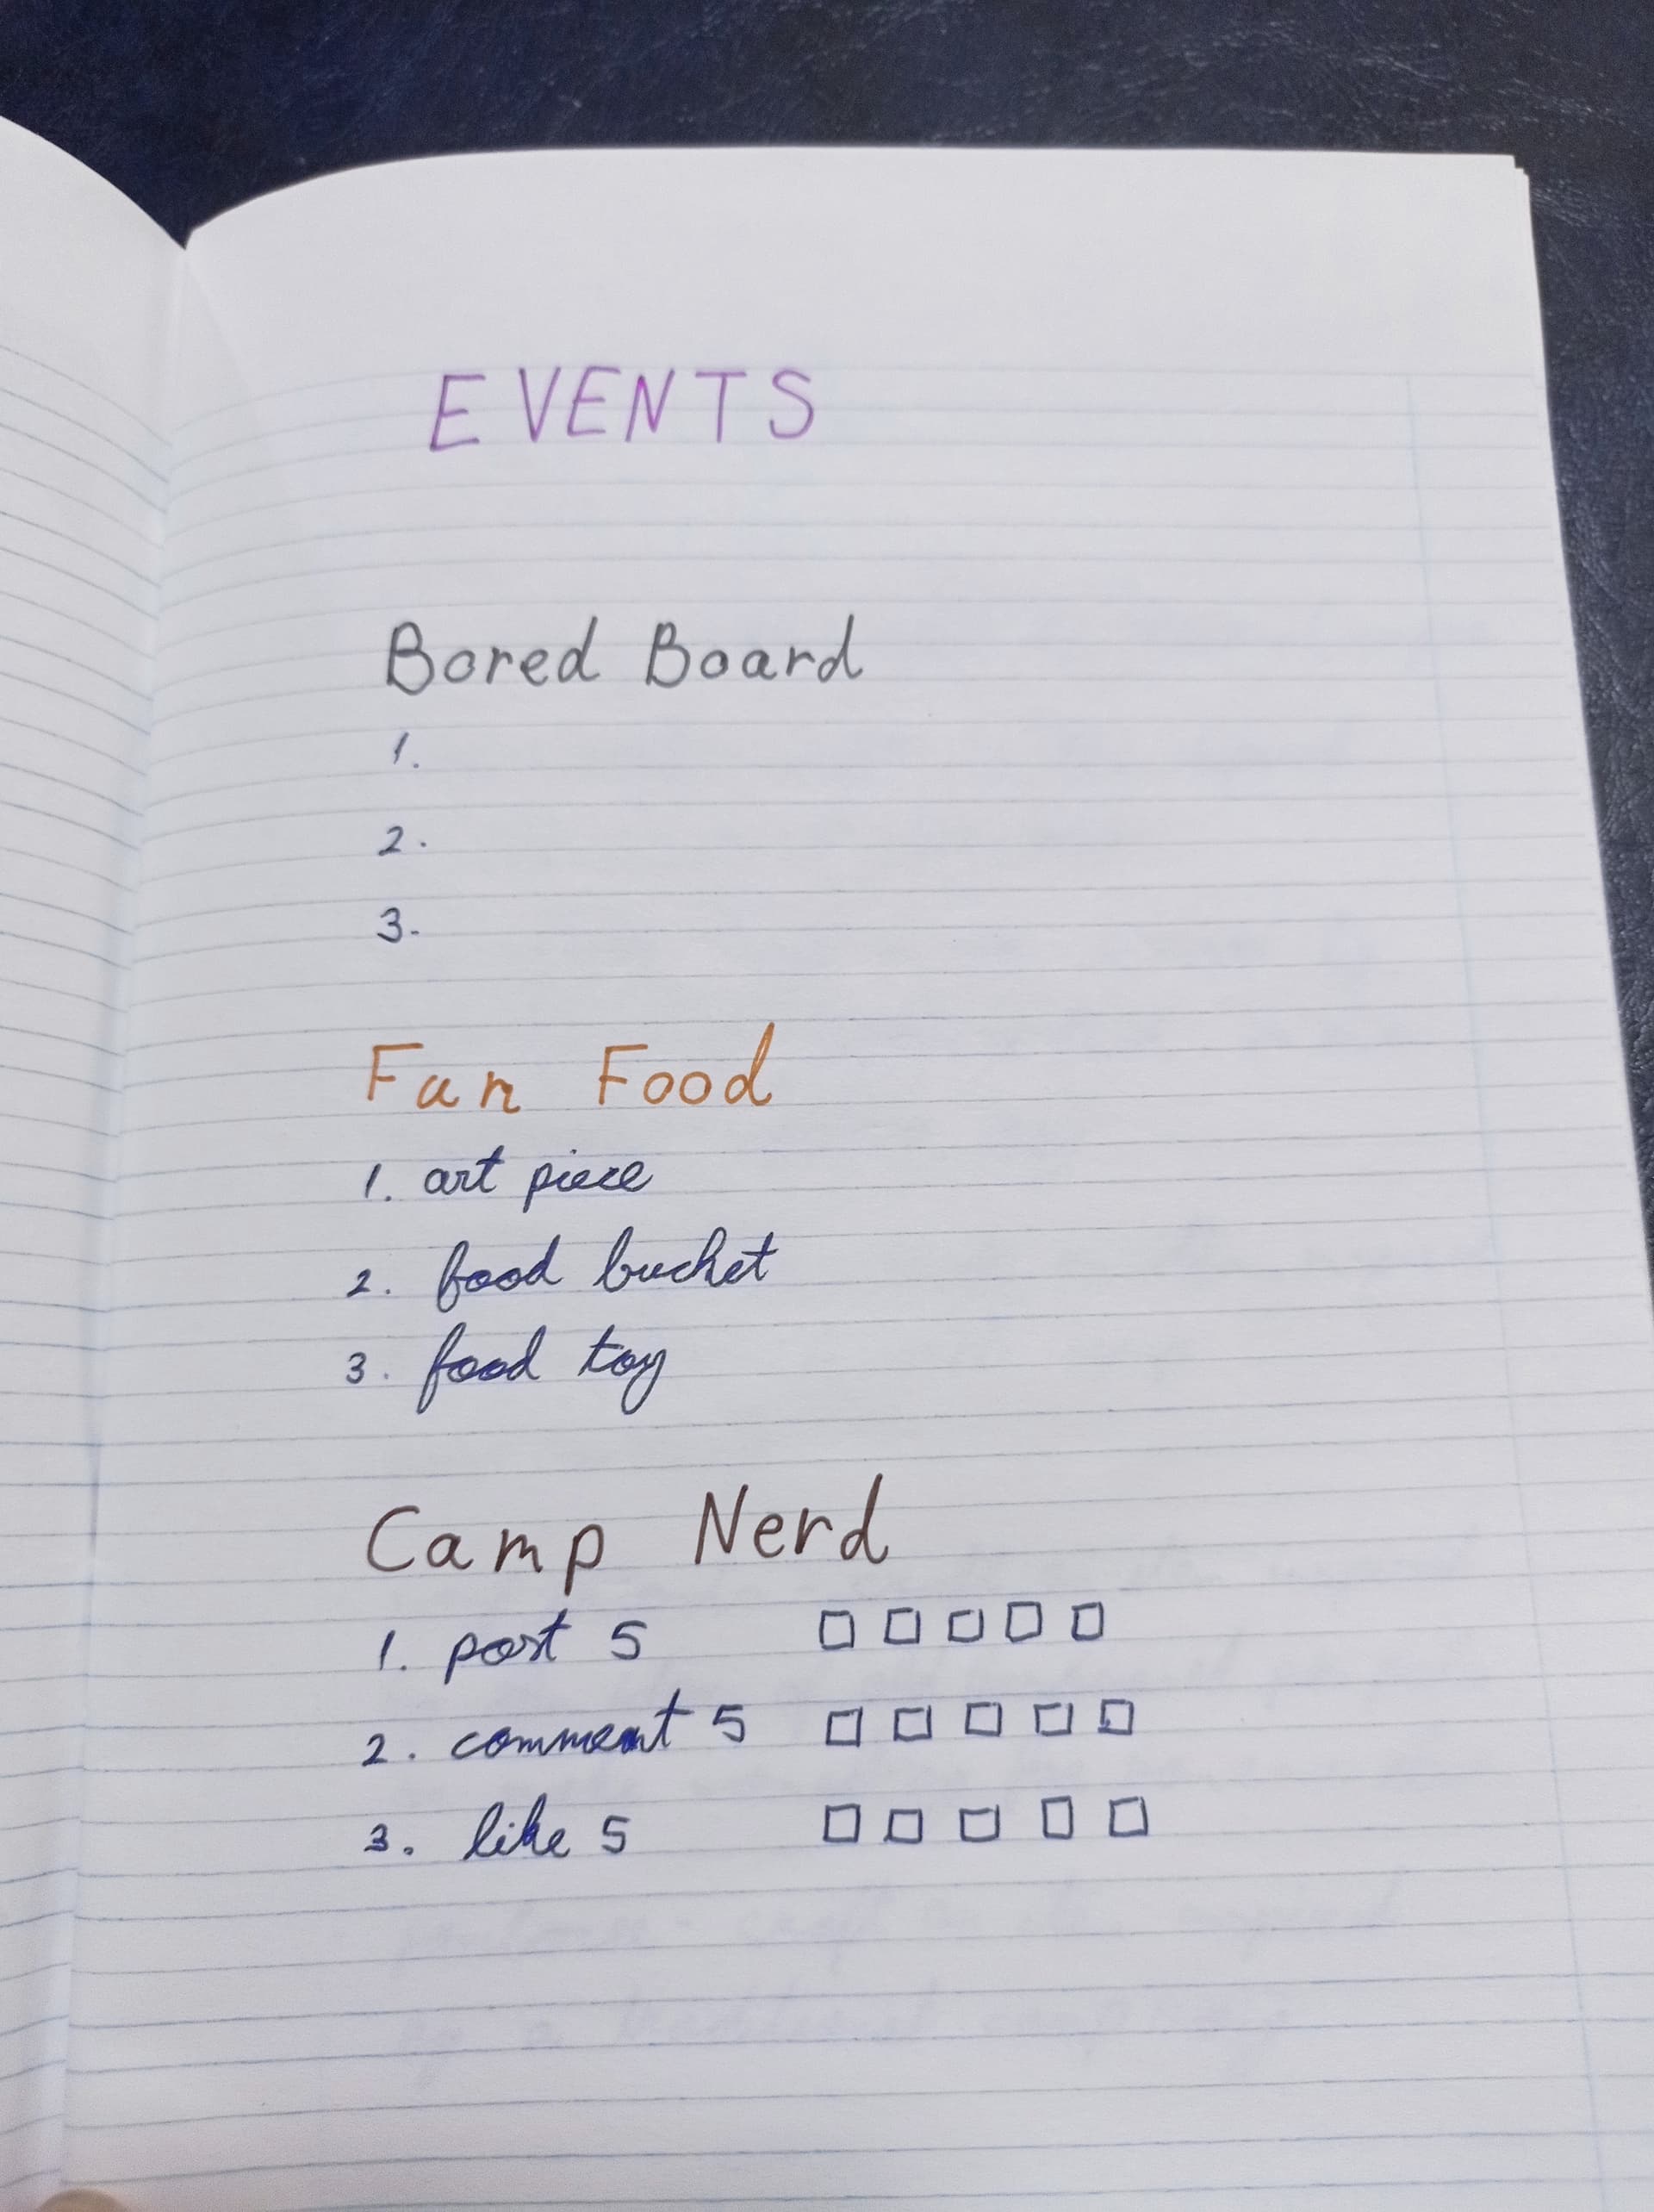 EVENTS
Bored Board
1.
2.
3.
Fun Food
1. art piece
2. food bucket
3. food toy
Camp Nerd
1. post 5 □ □ □ □ □
2. comment 5 □ □ □ □ □
3. like 5 □ □ □ □ □